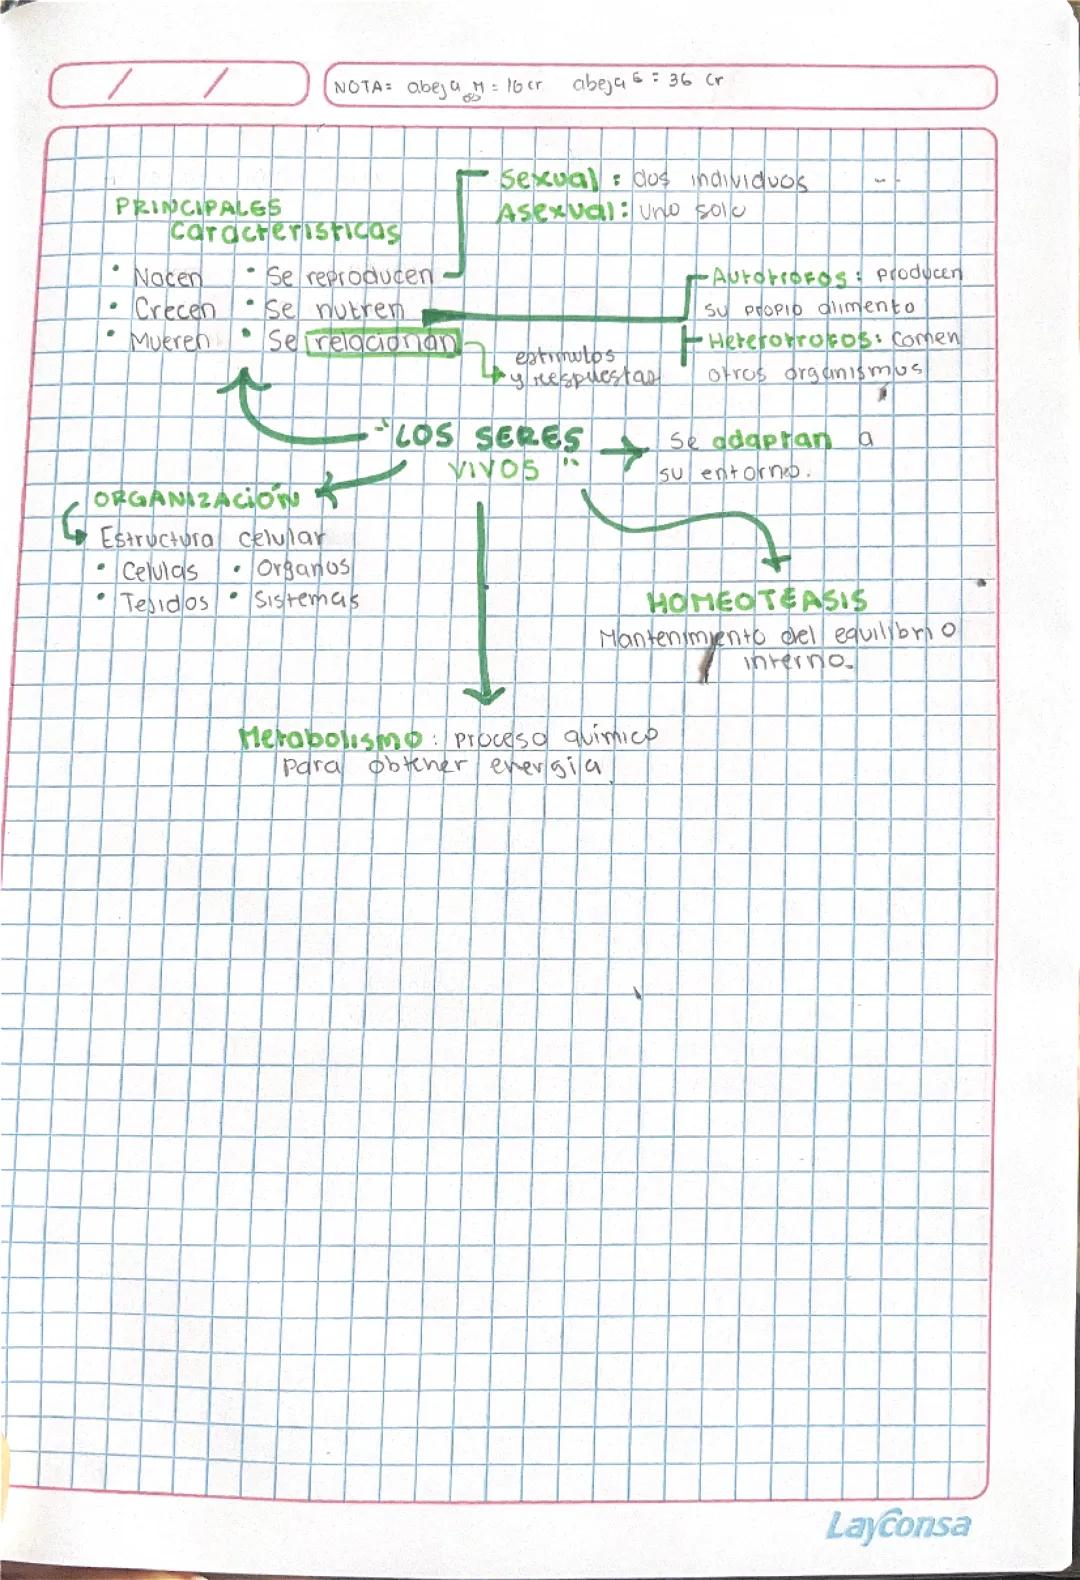 NOTA= abeja M = 16 cr abeja G = 36 cr
Sexual : dos individuos
Asexual: Uno solo
PRINCIPALES
características
• Nacen • Se reproducen
• Crecen • Se nutren
• Mueren • Se relacionan
Autotrofos: producen
su propio alimento
Heterotrofos: Comen
otros organismos
estimulos
y respuestas
"LOS SERES
VIVOS"
Se adaptan a
su entorno.
ORGANIZACIÓN
Estructura celular
• Celulas • Organos
• Tejidos • Sistemas
HOMEOTEASIS
Mantenimiento del equilibrio
interno.
Metabolismo: proceso químico
para obtener energía.
Layconsa